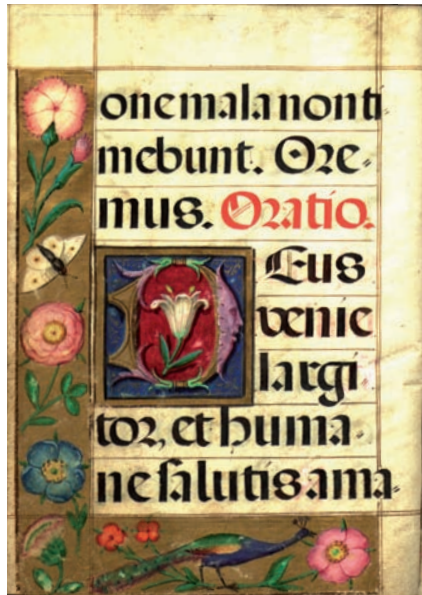 one mala non ti
mebunt. Ore-
mus. Oratio.
DEus
venie
largi
tor, et huma-
ne salutis ama-